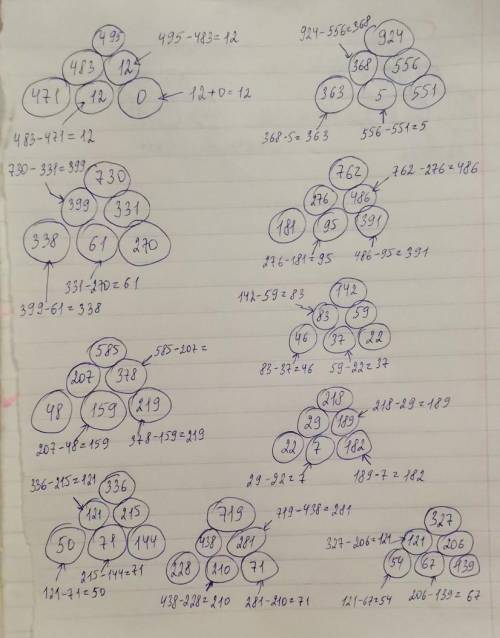 495
495-483=12
483 12
471 12 0
12+0=12
483-471=12
924-556=368
924
368 556
363 5 551
368-5=363
556-551=5
730-331=399
730
399 331
338 61 270
331-270=61
399-61=338
762
762-276=486
276 486
181 95 391
276-181=95
486-95=391
142-59=83
142
83 59
46 37 22
83-37=46
59-22=37
585
585-207=
207 378
48 159 219
207-48=159
378-159=219
218
218-29=189
29 189
22 7 182
29-22=7
189-7=182
336-215=121
336
121 215
50 71 144
215-144=71
121-71=50
719
719-438=281
438 281
228 210 71
438-228=210
281-210=71
327
327-206=121
121 206
54 67 139
121-67=54
206-139=67